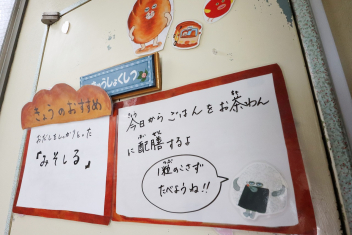 きゅうしょくしつ
きょうのおすすめ
おだしをしっかりとった
「みそしる」
今日からごはんをお茶わん
に配膳するよ
1粒のこさず
たべようね!!